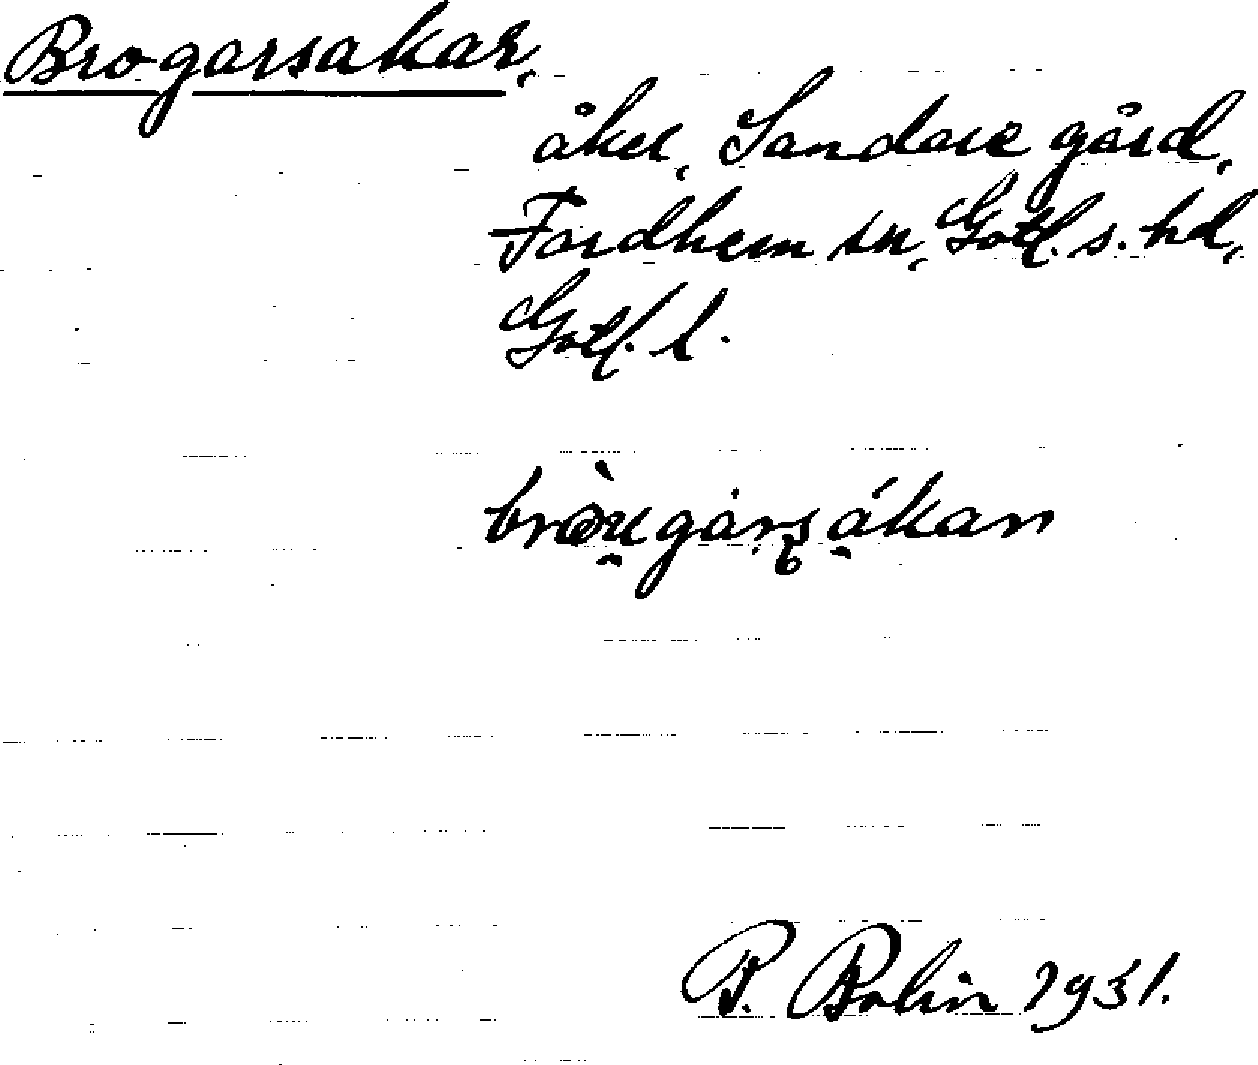 Brogarsakar,
åker, Sandare gård,
Fardhem sn, Gotl. s. hd,
Gotl. l.
P. Bolin 1931.